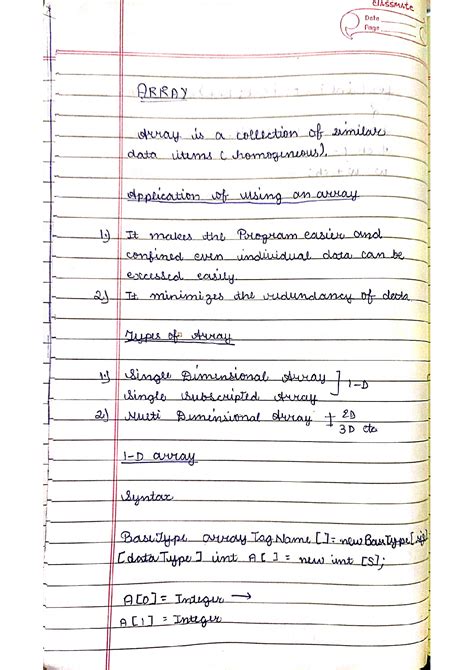 classmate
Date
Page
ARRAY
Array is a collection of similar
data items (homogeneous).
Application of using an array
1.) It makes the Program easier and
confined even individual data can be
excessed easily.
2.) It minimizes the redundancy of data
Types of Array
1.) Single Dimensional Array ] 1-D
Single Subscripted Array
2.) Multi Dimensional Array 2D
3D etc
1-D array
Syntax
BaseType arrayTagName []=new BaseType[
[dataType] int A[] = new int [5];
A[0] = Integer →
A[1] = Integer